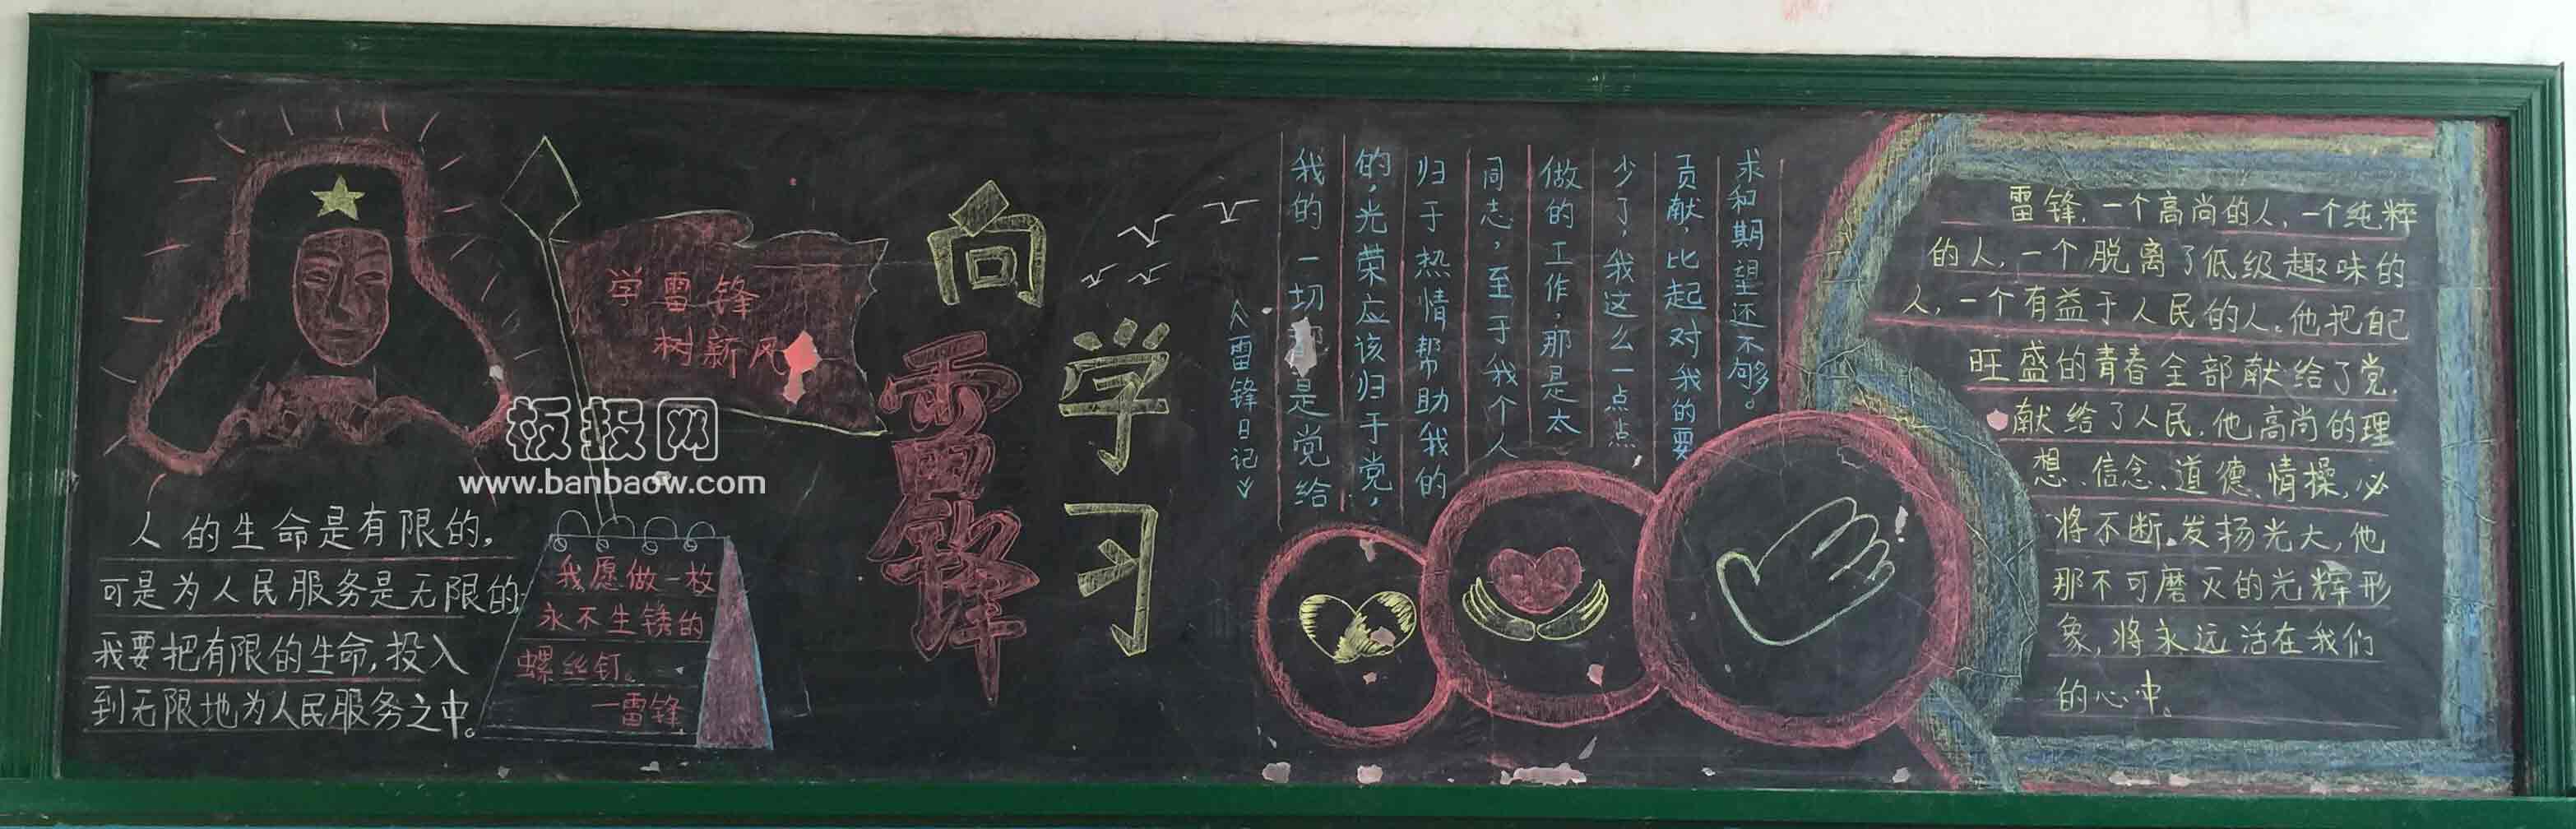 人的生命是有限的，
可是为人民服务是无限的，
我要把有限的生命，投入
到无限地为人民服务之中。
学雷锋
树新风
板报网
www.banbaow.com
我愿做一枚
永不生锈的
螺丝钉。
一雷锋
向
雷锋
学习
《雷锋日记》
我的一切都是党给
的，光荣应该归于党，
归于热情帮助我的
同志，至于我个人
做的工作，那是太
少了，我这么一点点
贡献，比起对我的要
求和期望还不够。
雷锋，一个高尚的人，一个纯粹
的人，一个脱离了低级趣味的
人，一个有益于人民的人。他把自己
旺盛的青春全部献给了党，
献给了人民，他高尚的理
想、信念、道德、情操，必
将不断发扬光大，他
那不可磨灭的光辉形
象，将永远活在我们
的心中。